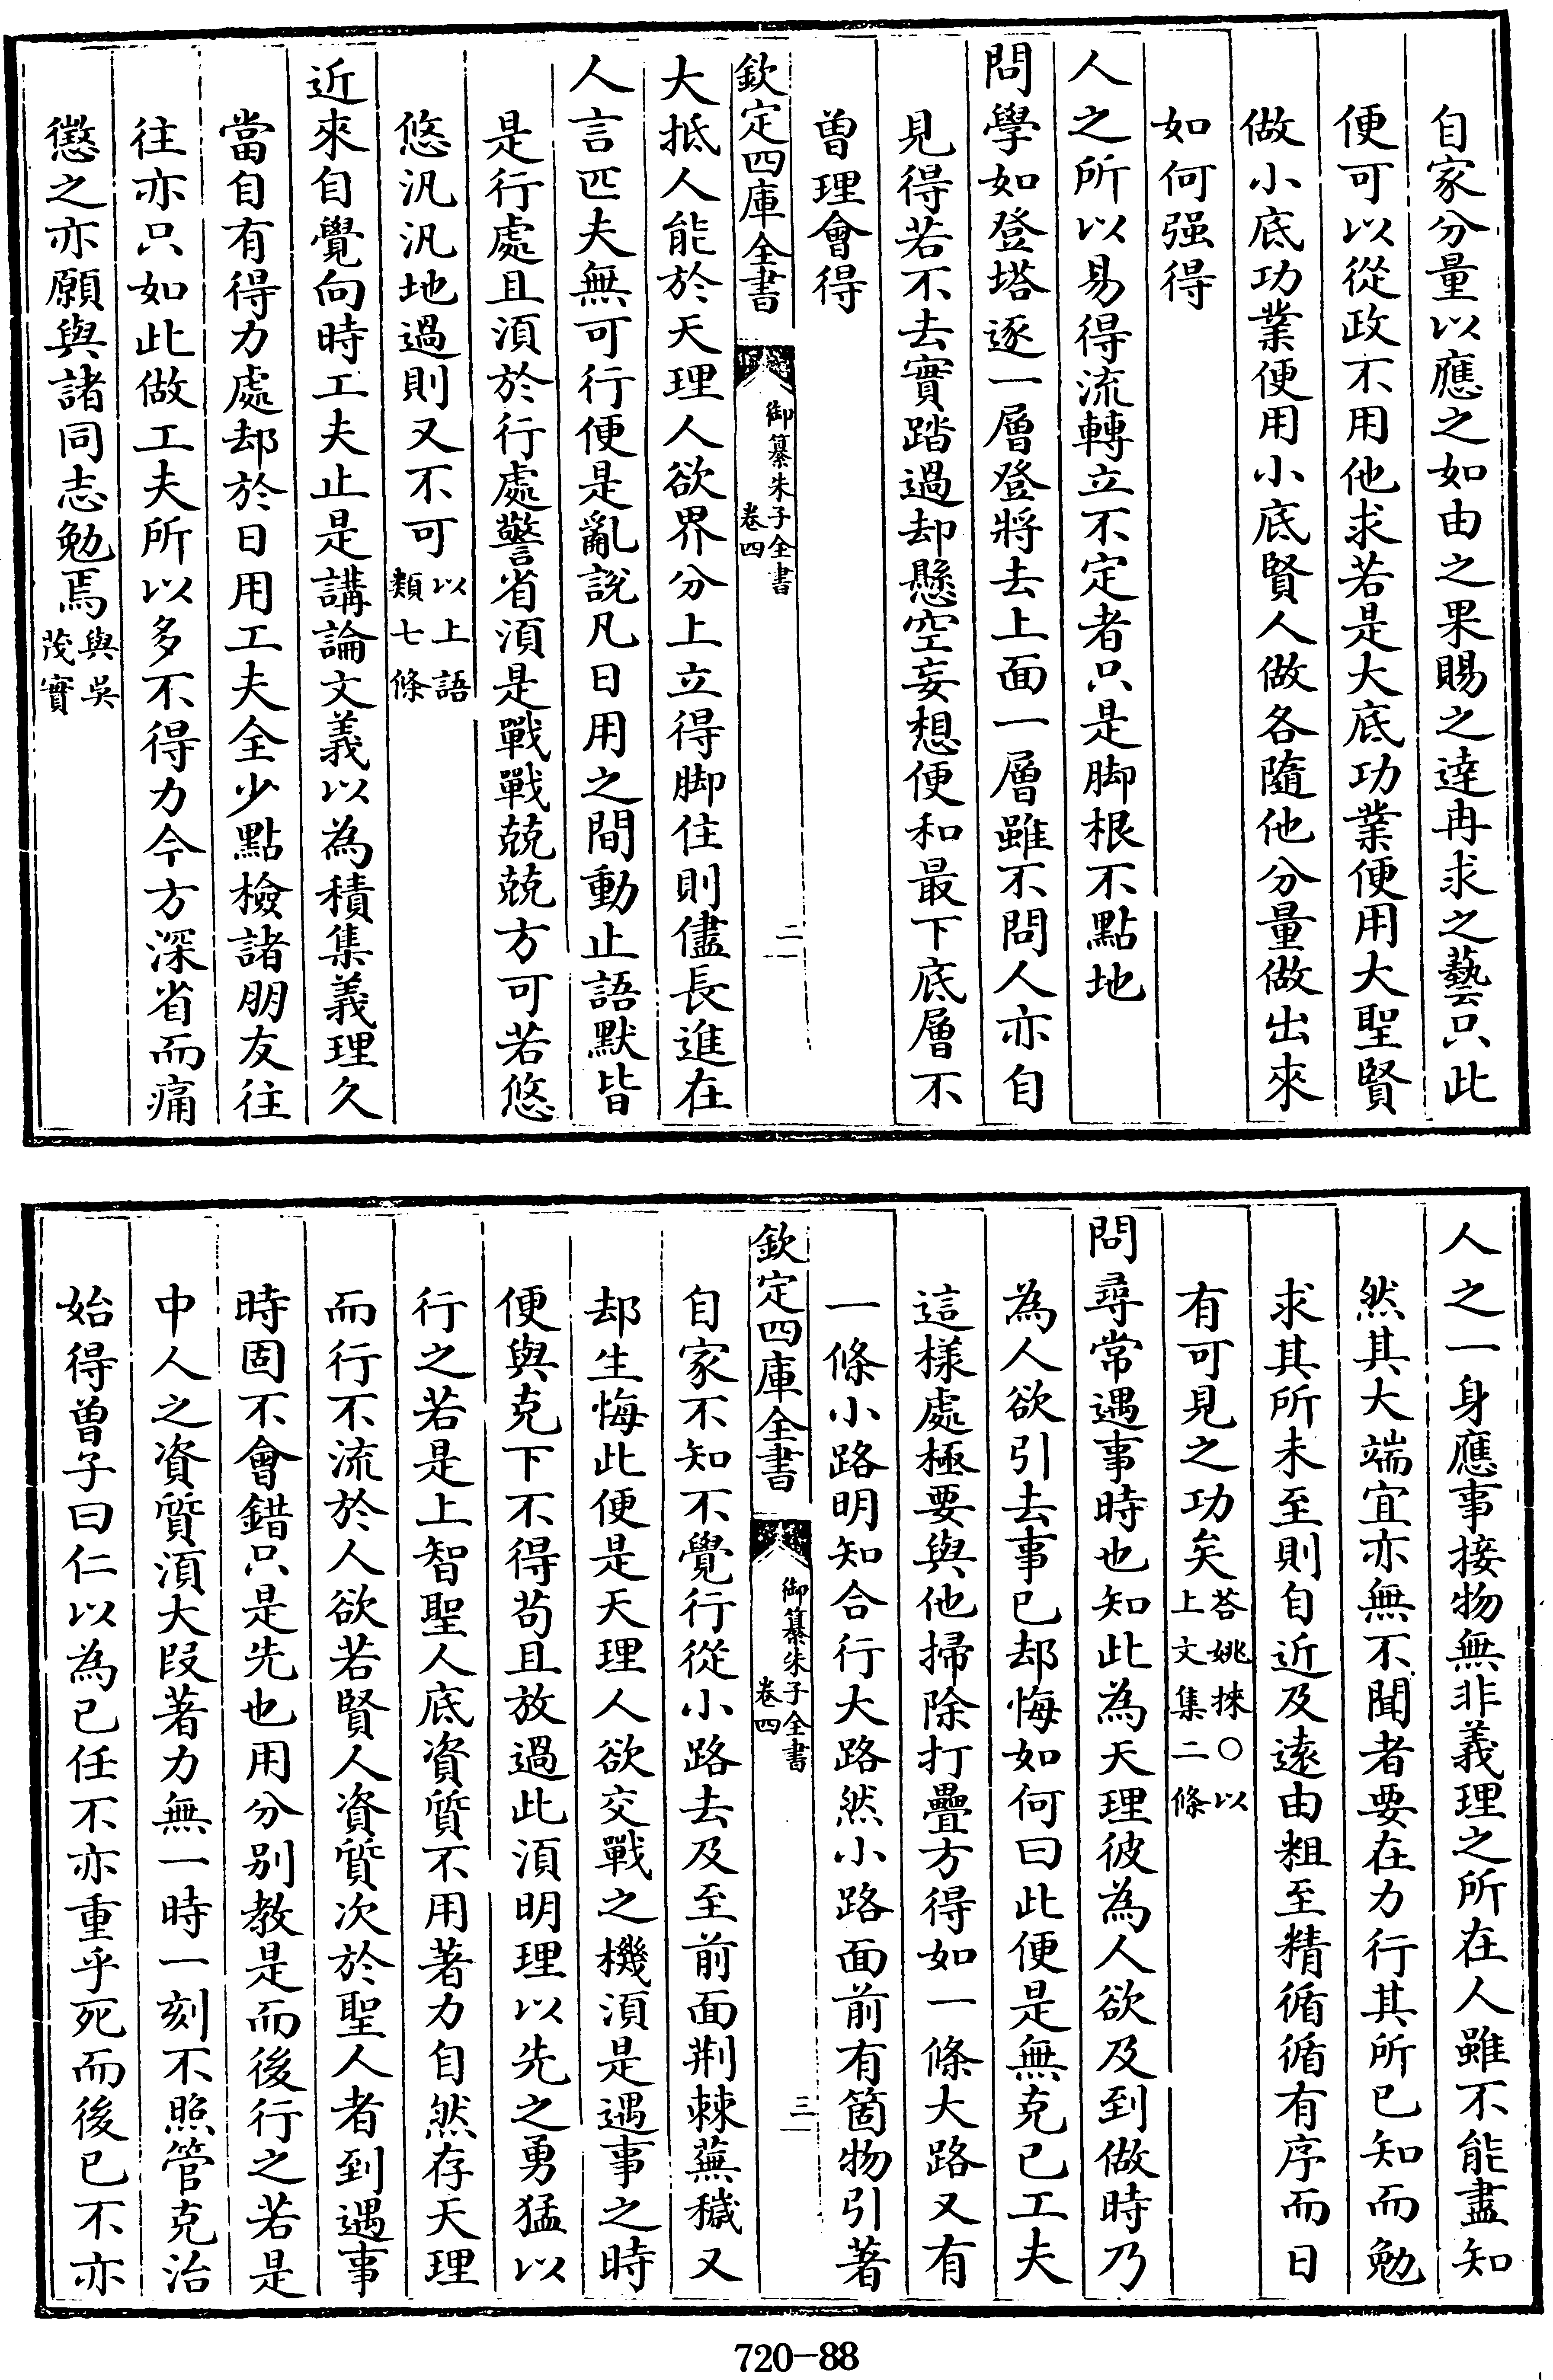 自家分量以應之如由之果賜之逹冉求之藝只此
便可以從政不用他求若是大底功業便用大聖賢
做小底功業便用小底賢人做各隨他分量做出來
如何强得
人之所以易得流轉立不定者只是脚根不點地
問學如登塔逐一層登將去上面一層雖不問人亦自
見得若不去實踏過却懸空妄想便和最下底層不
曾理會得
欽定四庫全書
御纂朱子全書
卷四
二
大抵人能於天理人欲界分上立得脚住則儘長進在
人言匹夫無可行便是亂說凡日用之間動止語默皆
是行處且須於行處警省須是戰戰兢兢方可若悠
悠汎汎地過則又不可以上語類七條
近來自覺向時工夫止是講論文義以為積集義理久
當自有得力處却於日用工夫全少點檢諸朋友往
往亦只如此做工夫所以多不得力今方深省而痛
懲之亦願與諸同志勉焉與吳茂實
人之一身應事接物無非義理之所在人雖不能盡知
然其大端宜亦無不聞者要在力行其所已知而勉
求其所未至則自近及遠由粗至精循循有序而日
有可見之功矣荅姚揀○以上文集二條
問尋常遇事時也知此為天理彼為人欲及到做時乃
為人欲引去事已却悔如何曰此便是無克已工夫
這樣處極要與他掃除打疊方得如一條大路又有
一條小路明知合行大路然小路面前有箇物引著
欽定四庫全書
御纂朱子全書
卷四
三
自家不知不覺行從小路去及至前面荆棘蕪穢又
却生悔此便是天理人欲交戰之機須是遇事之時
便與克下不得苟且放過此須明理以先之勇猛以
行之若是上智聖人底資質不用著力自然存天理
而行不流於人欲若賢人資質次於聖人者到遇事
時固不會錯只是先也用分别教是而後行之若是
中人之資質須大叚著力無一時一刻不照管克治
始得曽子曰仁以為已任不亦重乎死而後已不亦
720-88